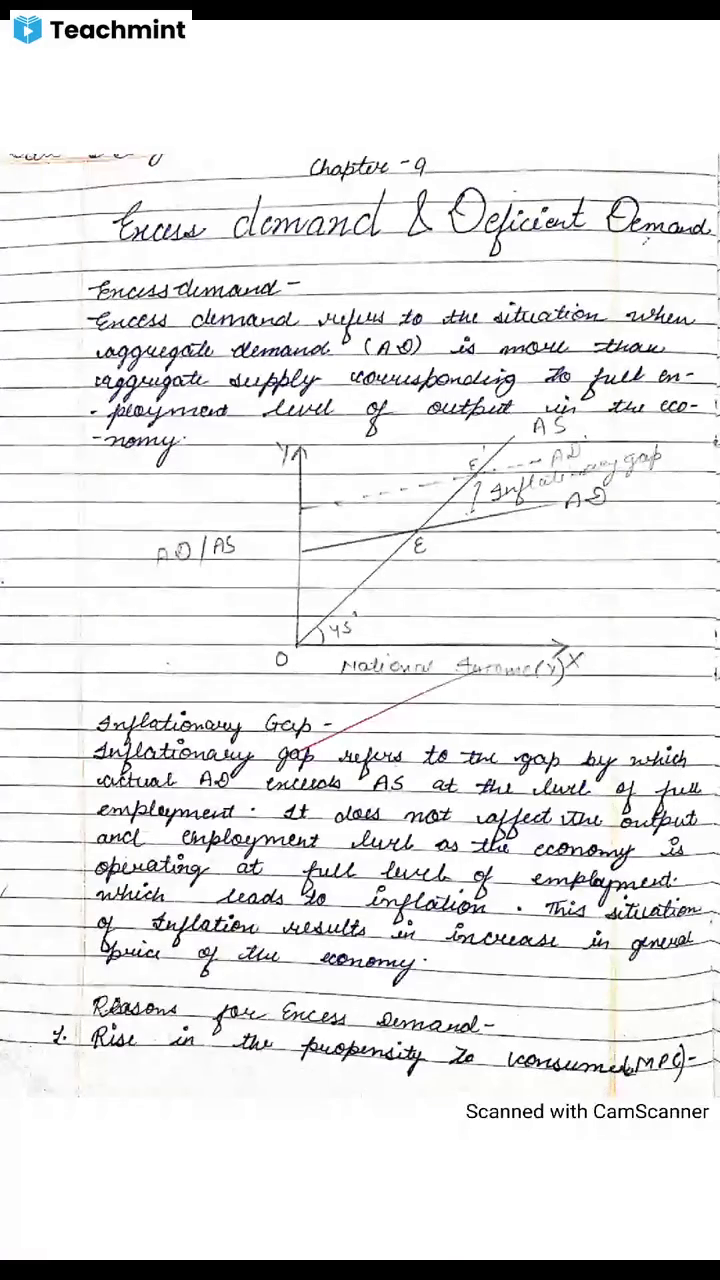 Teachmint
Chapter - 9
Excess demand & Deficient Demand
Excess demand -
Excess demand refers to the situation when
aggregate demand (AD) is more than
aggregate supply corresponding to full em-
-ployment level of output in the eco-
-nomy.
AS
Y
E' AD'
Inflationary gap
AD
AD/AS
E
45°
O
National Income(Y) X
Inflationary Gap -
Inflationary gap refers to the gap by which
actual AD exceeds AS at the level of full
employment. It does not affect the output
and employment level as the economy is
operating at full level of employment.
which leads to inflation. This situation
of Inflation results in increase in general
price of the economy.
Reasons for Excess Demand -
1. Rise in the propensity to consume(MPC)-
Scanned with CamScanner